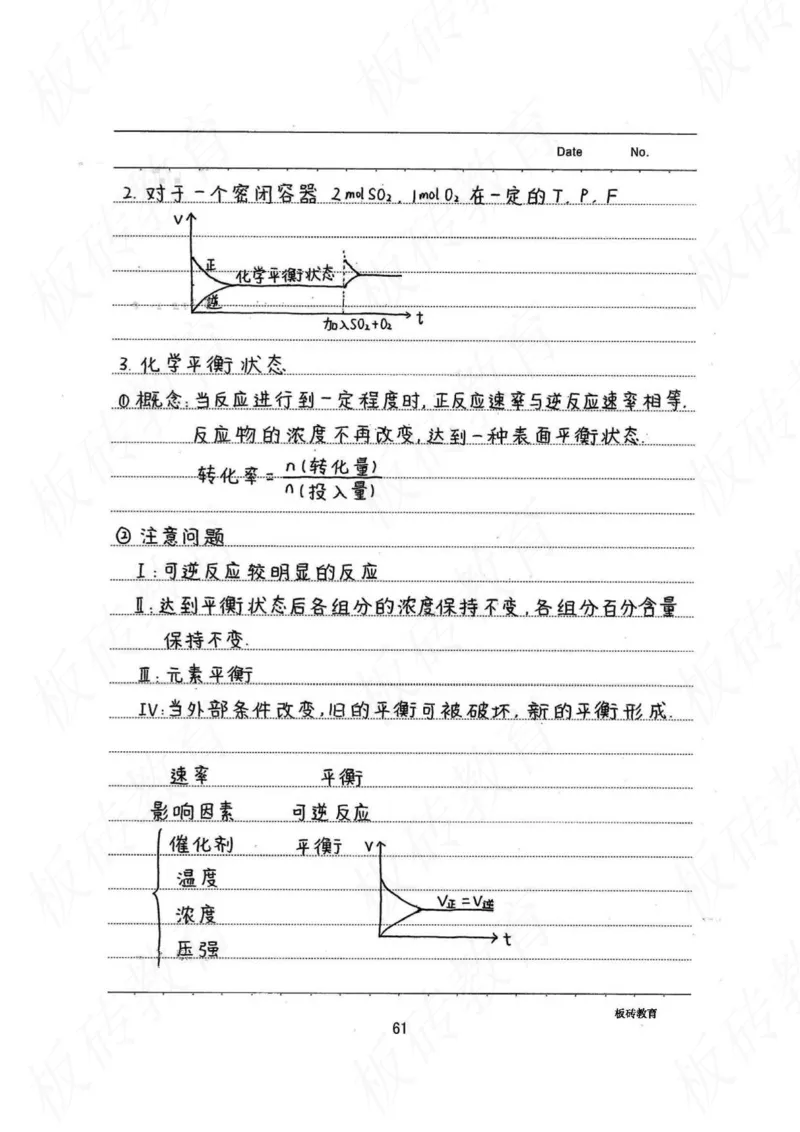 Date No.
2. 对于一个密闭容器 2molSO₂, 1molO₂ 在一定的 T. P. F
V
正
化学平衡状态
逆
t
加入SO₂+O₂
3. 化学平衡状态
① 概念:当反应进行到一定程度时,正反应速率与逆反应速率相等.
反应物的浓度不再改变,达到一种表面平衡状态.
转化率= n(转化量)
n(投入量)
② 注意问题
Ⅰ:可逆反应较明显的反应
Ⅱ:达到平衡状态后各组分的浓度保持不变,各组分百分含量
保持不变.
Ⅲ:元素平衡
Ⅳ:当外部条件改变,旧的平衡可被破坏,新的平衡形成.
速率 平衡
影响因素 可逆反应
催化剂 平衡 V
温度
浓度 V正=V逆
压强 t
板砖教育
61